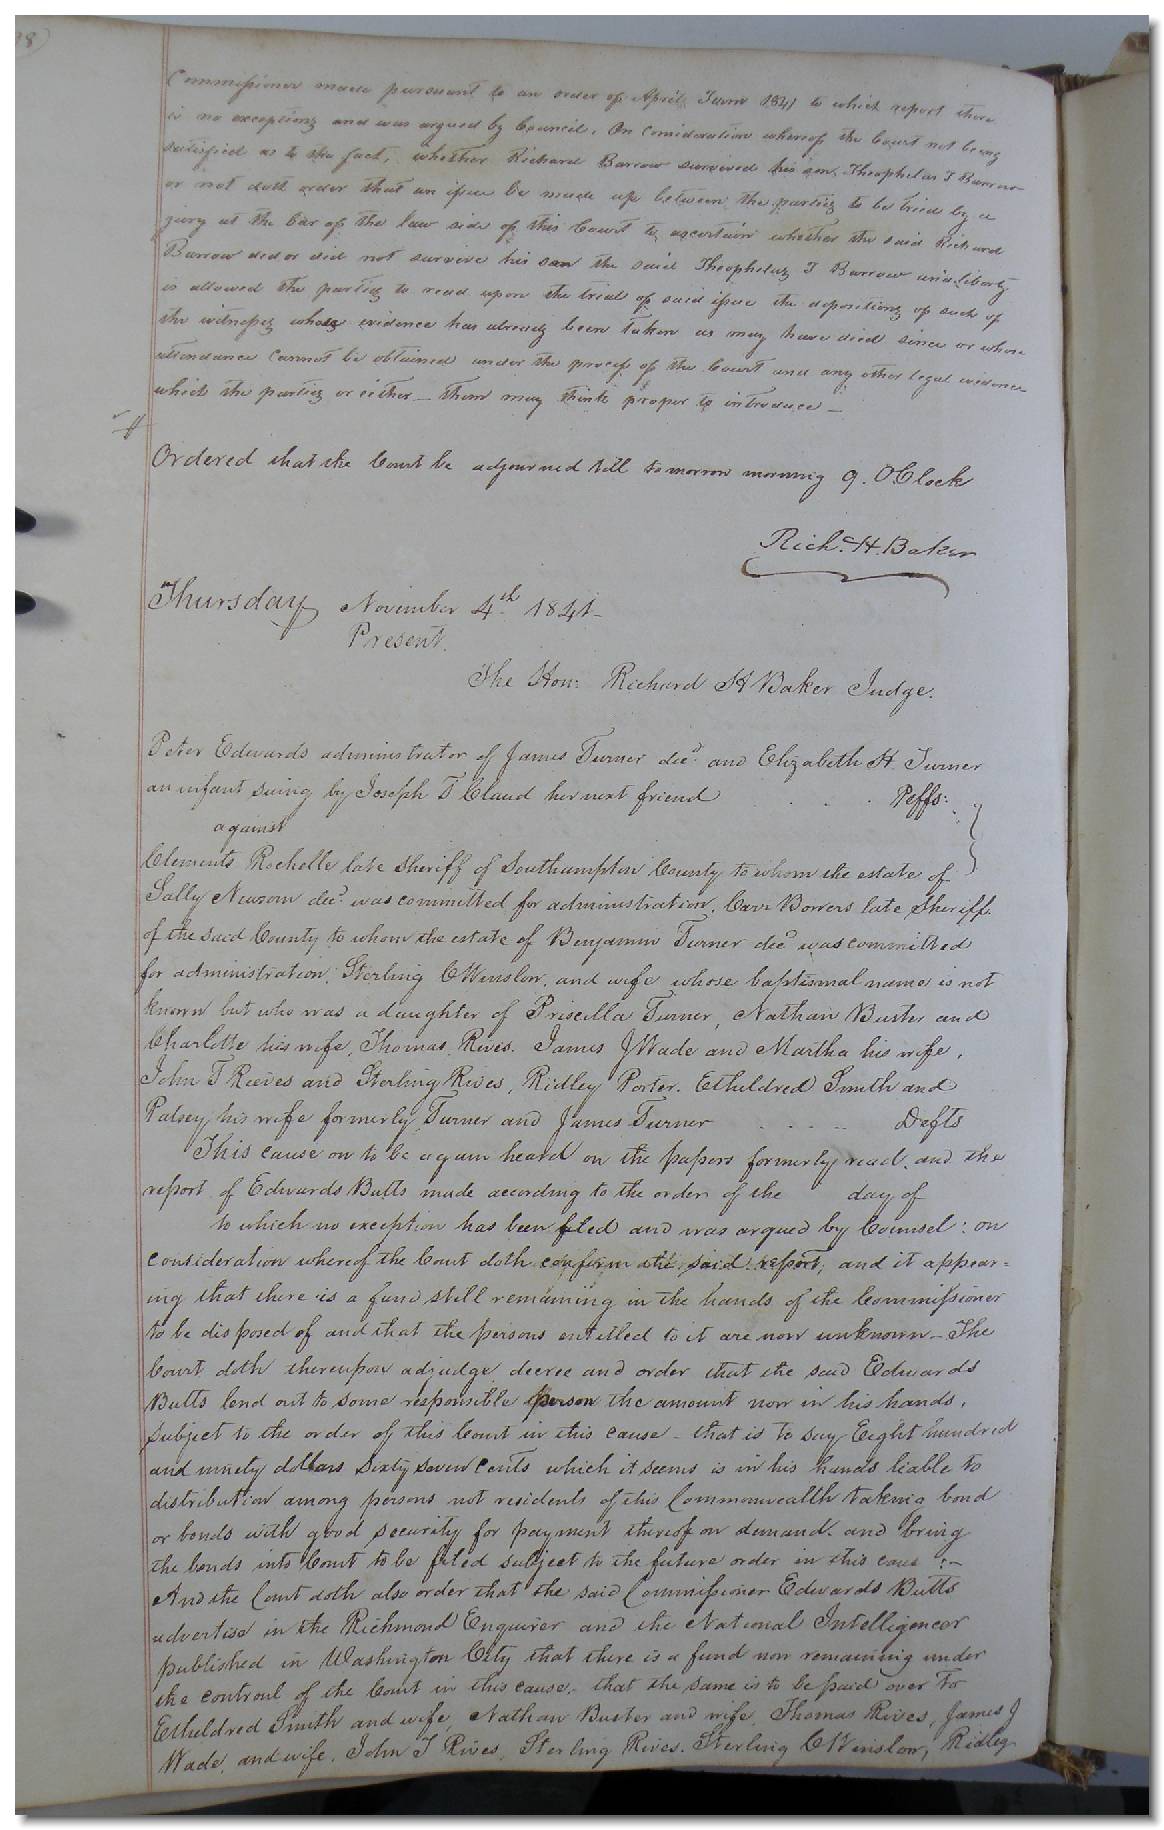 Commissioner made pursuant to an order of April Term 1841 to which report there
is no exceptions and was argued by Council. On Consideration whereof the Court not being
satisfied as to the fact, whether Richard Barrow survived his son, Theophilus T Barrow
or not doth order that an issue be made up between the parties to be tried by a
jury at the bar of the law side of this Court to ascertain whether the said Richard
Barrow did or did not survive his son the said Theophilus T Barrow and liberty
is allowed the parties to read upon the trial of said issue the depositions of such of
the witnesses whose evidence has already been taken as may have died since or whose
attendance cannot be obtained under the process of the Court and any other legal evidence
which the parties or either – them may think proper to introduce –
Ordered that the Court be adjourned till tomorrow morning 9. OClock
Rich.d H. Baker
Thursday November 4th 1841–
Present.
The Hon: Richard H Baker Judge.
Peter Edwards administrator of James Turner decd. and Elizabeth H. Turner
an infant suing by Joseph T Claud her next friend . . . Peffs:
against
Clements Rochelle late Sheriff of Southampton County to whom the estate of
Sally Newsom decd. was committed for administration, Carr Bowers late Sheriff
of the said County to whom the estate of Benjamin Turner decd was committed
for administration; Sterling C Winslow, and wife whose baptismal name is not
known but who was a daughter of Priscilla Turner, Nathan Buster and
Charlotte his wife, Thomas Rives. James J Wade and Martha his wife,
John T Reeves and Sterling Rives, Ridley Porter. Etheldred Smith and
Patsey his wife formerly Turner and James Turner . . . . Defts
This cause on to be again heard on the papers formerly read, and the
report of Edwards Butts made according to the order of the day of
to which no exception has been filed and was argued by Counsel: on
consideration whereof the Court doth confirm the said report; and it appear=
ing that there is a fund still remaining in the hands of the Commissioner
to be disposed of and that the persons entitled to it are now unknown – The
Court doth thereupon adjudge decree and order that the said Edwards
Butts lend out to some responsible person the amount now in his hands,
subject to the order of this Court in this cause – that is to say Eight hundred
and ninety dollars Sixty seven cents which it seems is in his hands liable to
distribution among persons not residents of this Commonwealth taking bond
or bonds with good security for payment thereof on demand. and bring
the bonds into Court to be filed subject to the future order in this cause :–
And the Court doth also order that the said Commissioner Edwards Butts
advertise in the Richmond Enquirer and the National Intelligencer
published in Washington City that there is a fund now remaining under
the controul of the Court in this cause. that the same is to be paid over to
Etheldred Smith and wife, Nathan Buster and wife, Thomas Rives, James J
Wade, and wife, John T Rives, Sterling Rives. Sterling C Winslow, Ridley